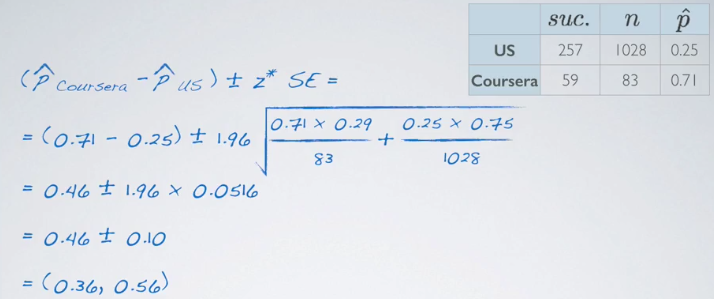 suc. n p̂
US 257 1028 0.25
Coursera 59 83 0.71
(p̂ Coursera - p̂ US) ± z* SE =
= (0.71 - 0.25) ± 1.96 √(0.71 × 0.29 / 83 + 0.25 × 0.75 / 1028)
= 0.46 ± 1.96 × 0.0516
= 0.46 ± 0.10
= (0.36, 0.56)